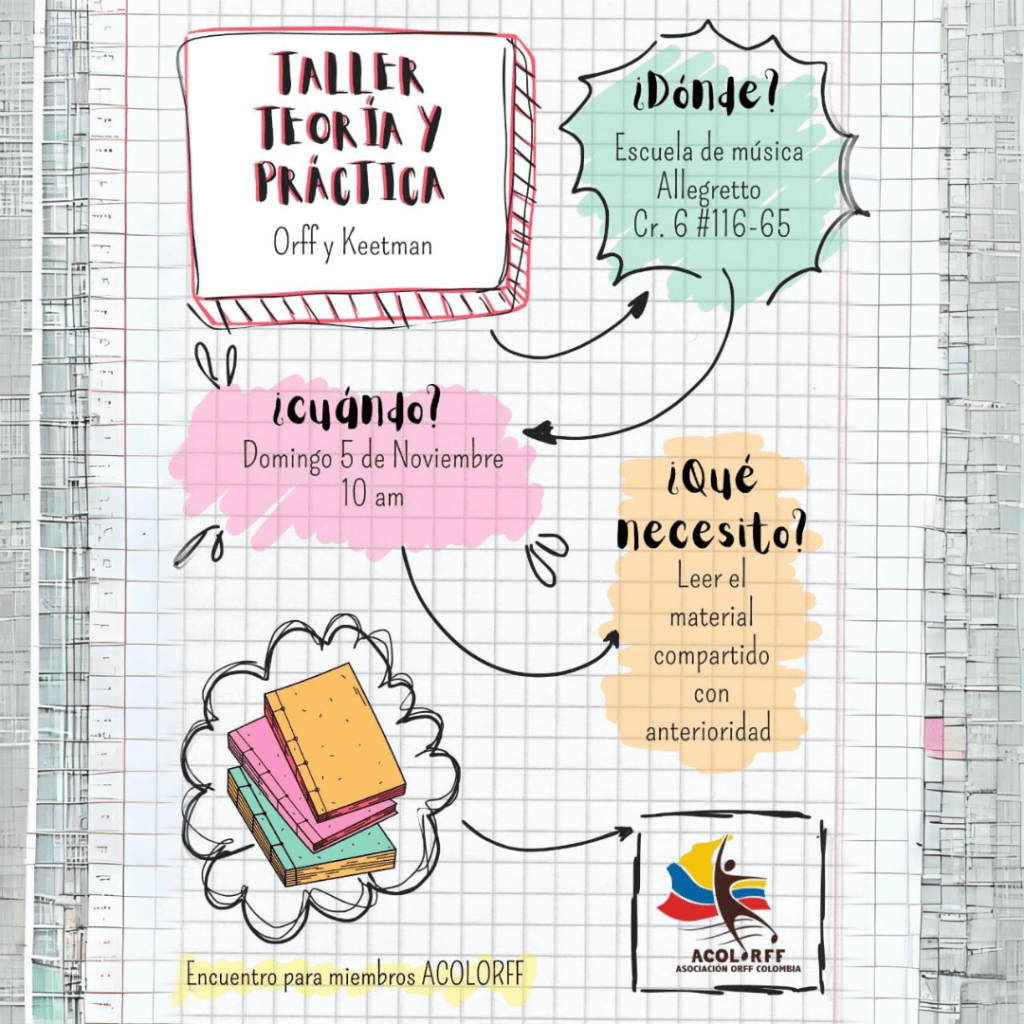 TALLER
TEORÍA Y
PRÁCTICA
Orff y Keetman
¿Dónde?
Escuela de música
Allegretto
Cr. 6 #116-65
¿cuándo?
Domingo 5 de Noviembre
10 am
¿Qué
necesito?
Leer el
material
compartido
con
anterioridad
Encuentro para miembros ACOLORFF
ACOLORFF
ASOCIACIÓN ORFF COLOMBIA